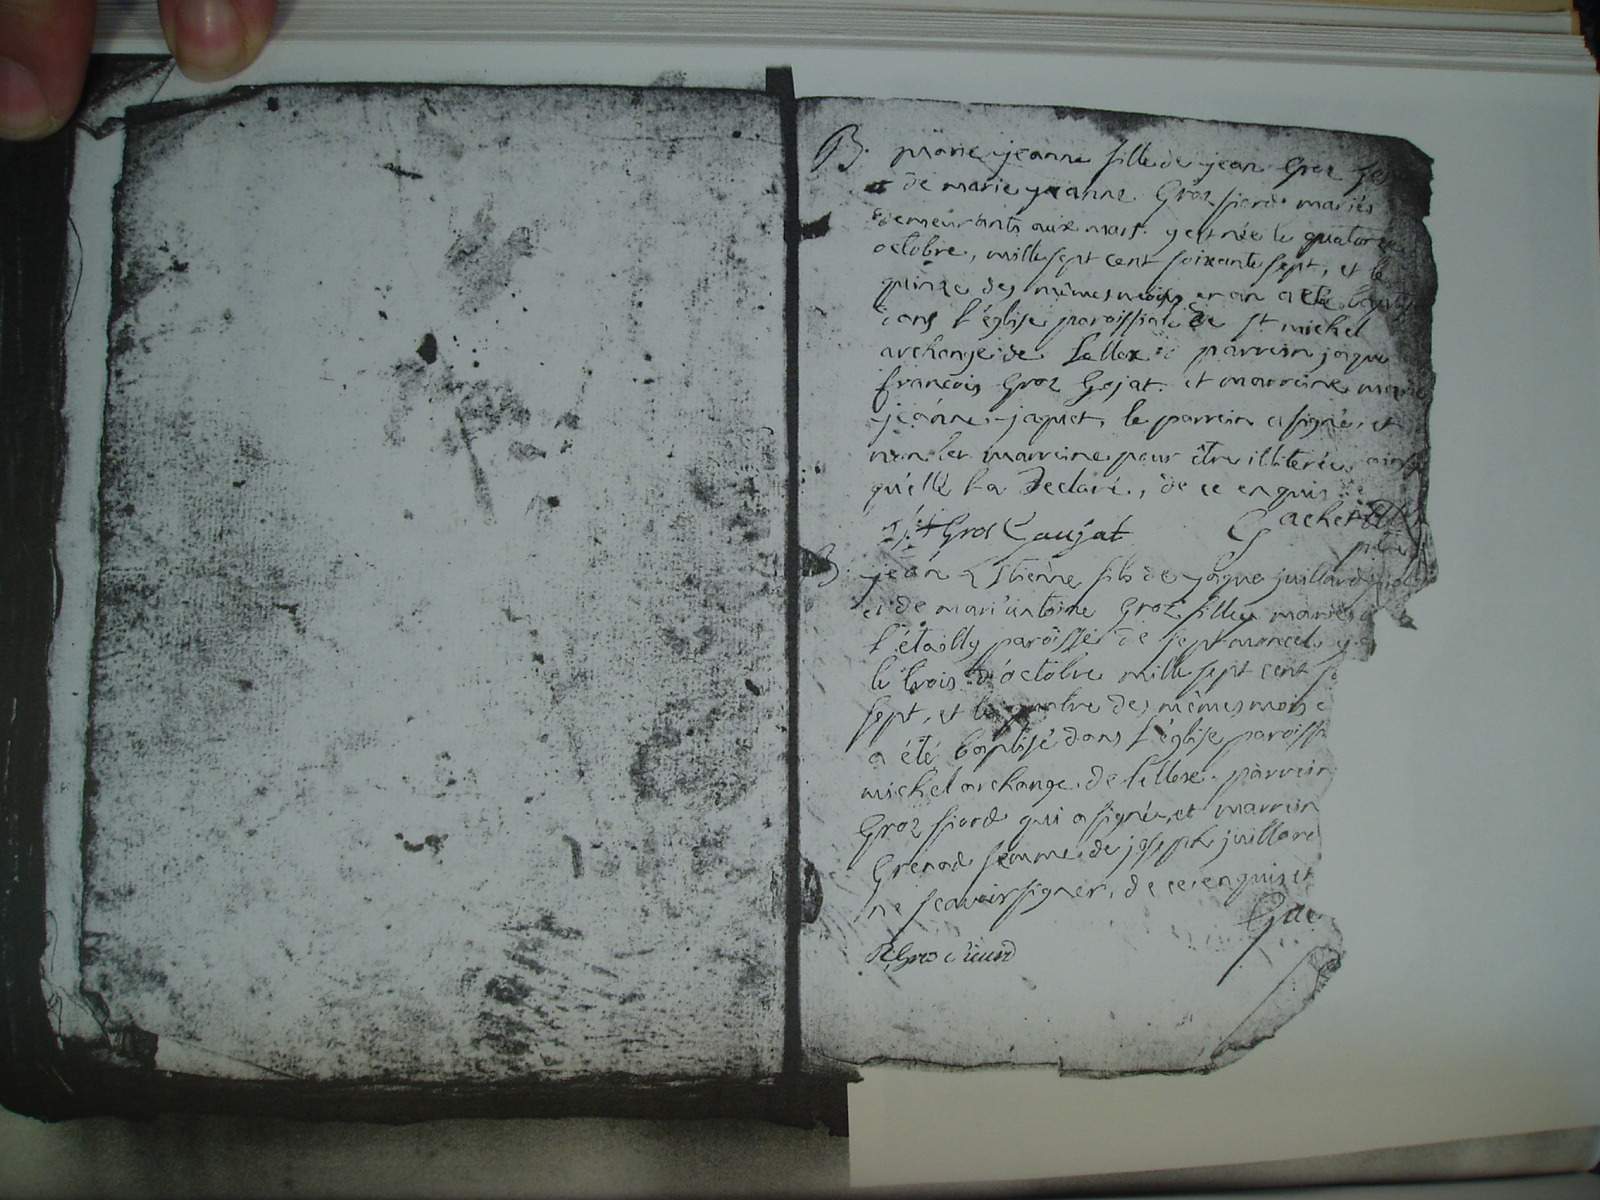 B. marie jeanne fille de jean Groz
et de marie jeanne Groz fiord mariés
demeurants aux mars. y est née le quatorze
octobre, mille sept cent soixante sept, et le
quinze des mêmes mois et an a été
dans l'église paroissiale de St michel
archange de Lellex parrein jaque
françois Groz Gojat. et marreine marie
jeanne jaquet, le parrein a signé, et
non la marreine pour être illiterée, ainsi
qu'elle l'a Declaré, de ce enquis
Gros Gaujat Gachet
B. jean Etienne fils de jaque juillard
et de mari'antoine Groz filleu mariés
l'étailly paroisse de septmoncel
le trois d'octobre mille sept cent
sept, et le quatre des mêmes mois e
a été baptisé dans l'église paroiss
michel archange de lellex. parrein
Groz fiord qui a signé, et marrein
Grenod femme de joseph juillard
ne scavoir signer, de ce enquis et
Gac
Gros fiord